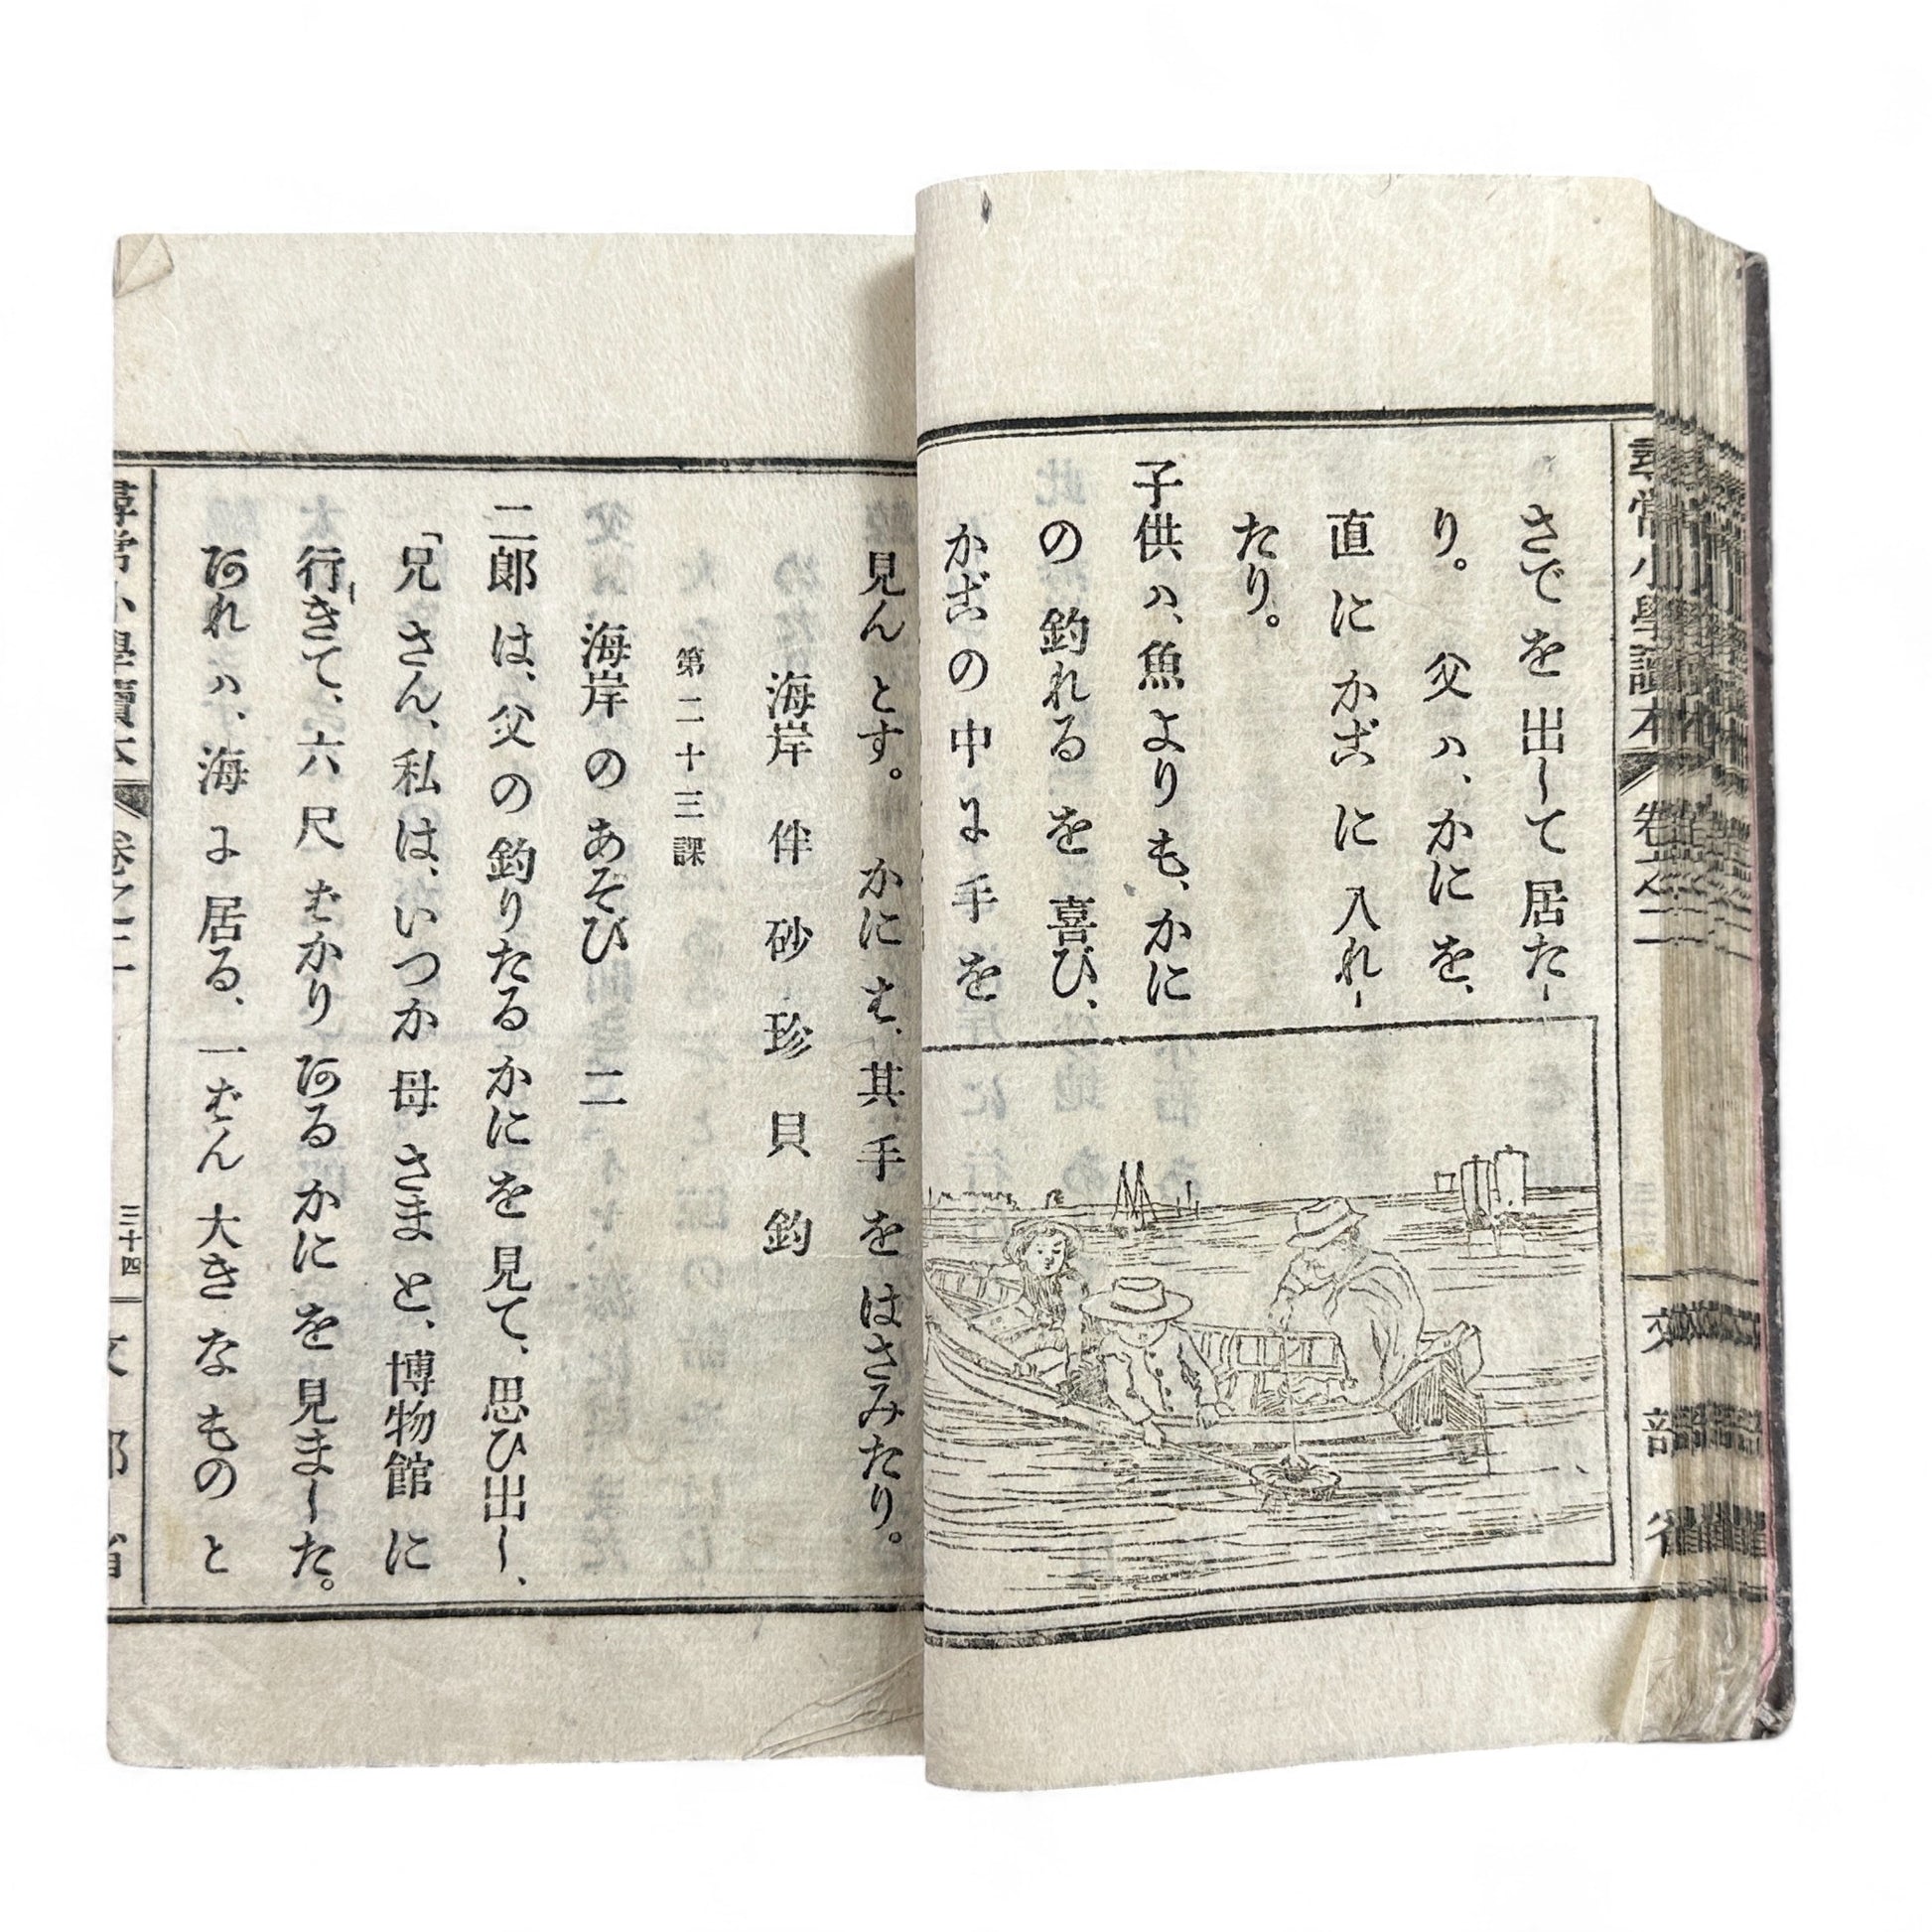 尋常小學讀本 卷之二 文部省
さで を 出して 居た-
り。 父ハ、かにを、
直に かごに 入れ-
たり。
子供ハ、魚よりも、かに
の 釣れるを 喜び、
かごの中に手を
見んとす。 かには、其手をはさみたり。
海岸 伴 砂 珍 貝 釣
第二十三課
海岸のあそび 二
二郎は、父の釣りたるかにを見て、思ひ出し、
「兄さん、私は、いつか母さまと、博物館に
行きて、六尺ばかりあるかにを見ました。
あれハ、海に居る、一ばん大きなものと
尋常小學讀本 卷之二 三十四 文部省